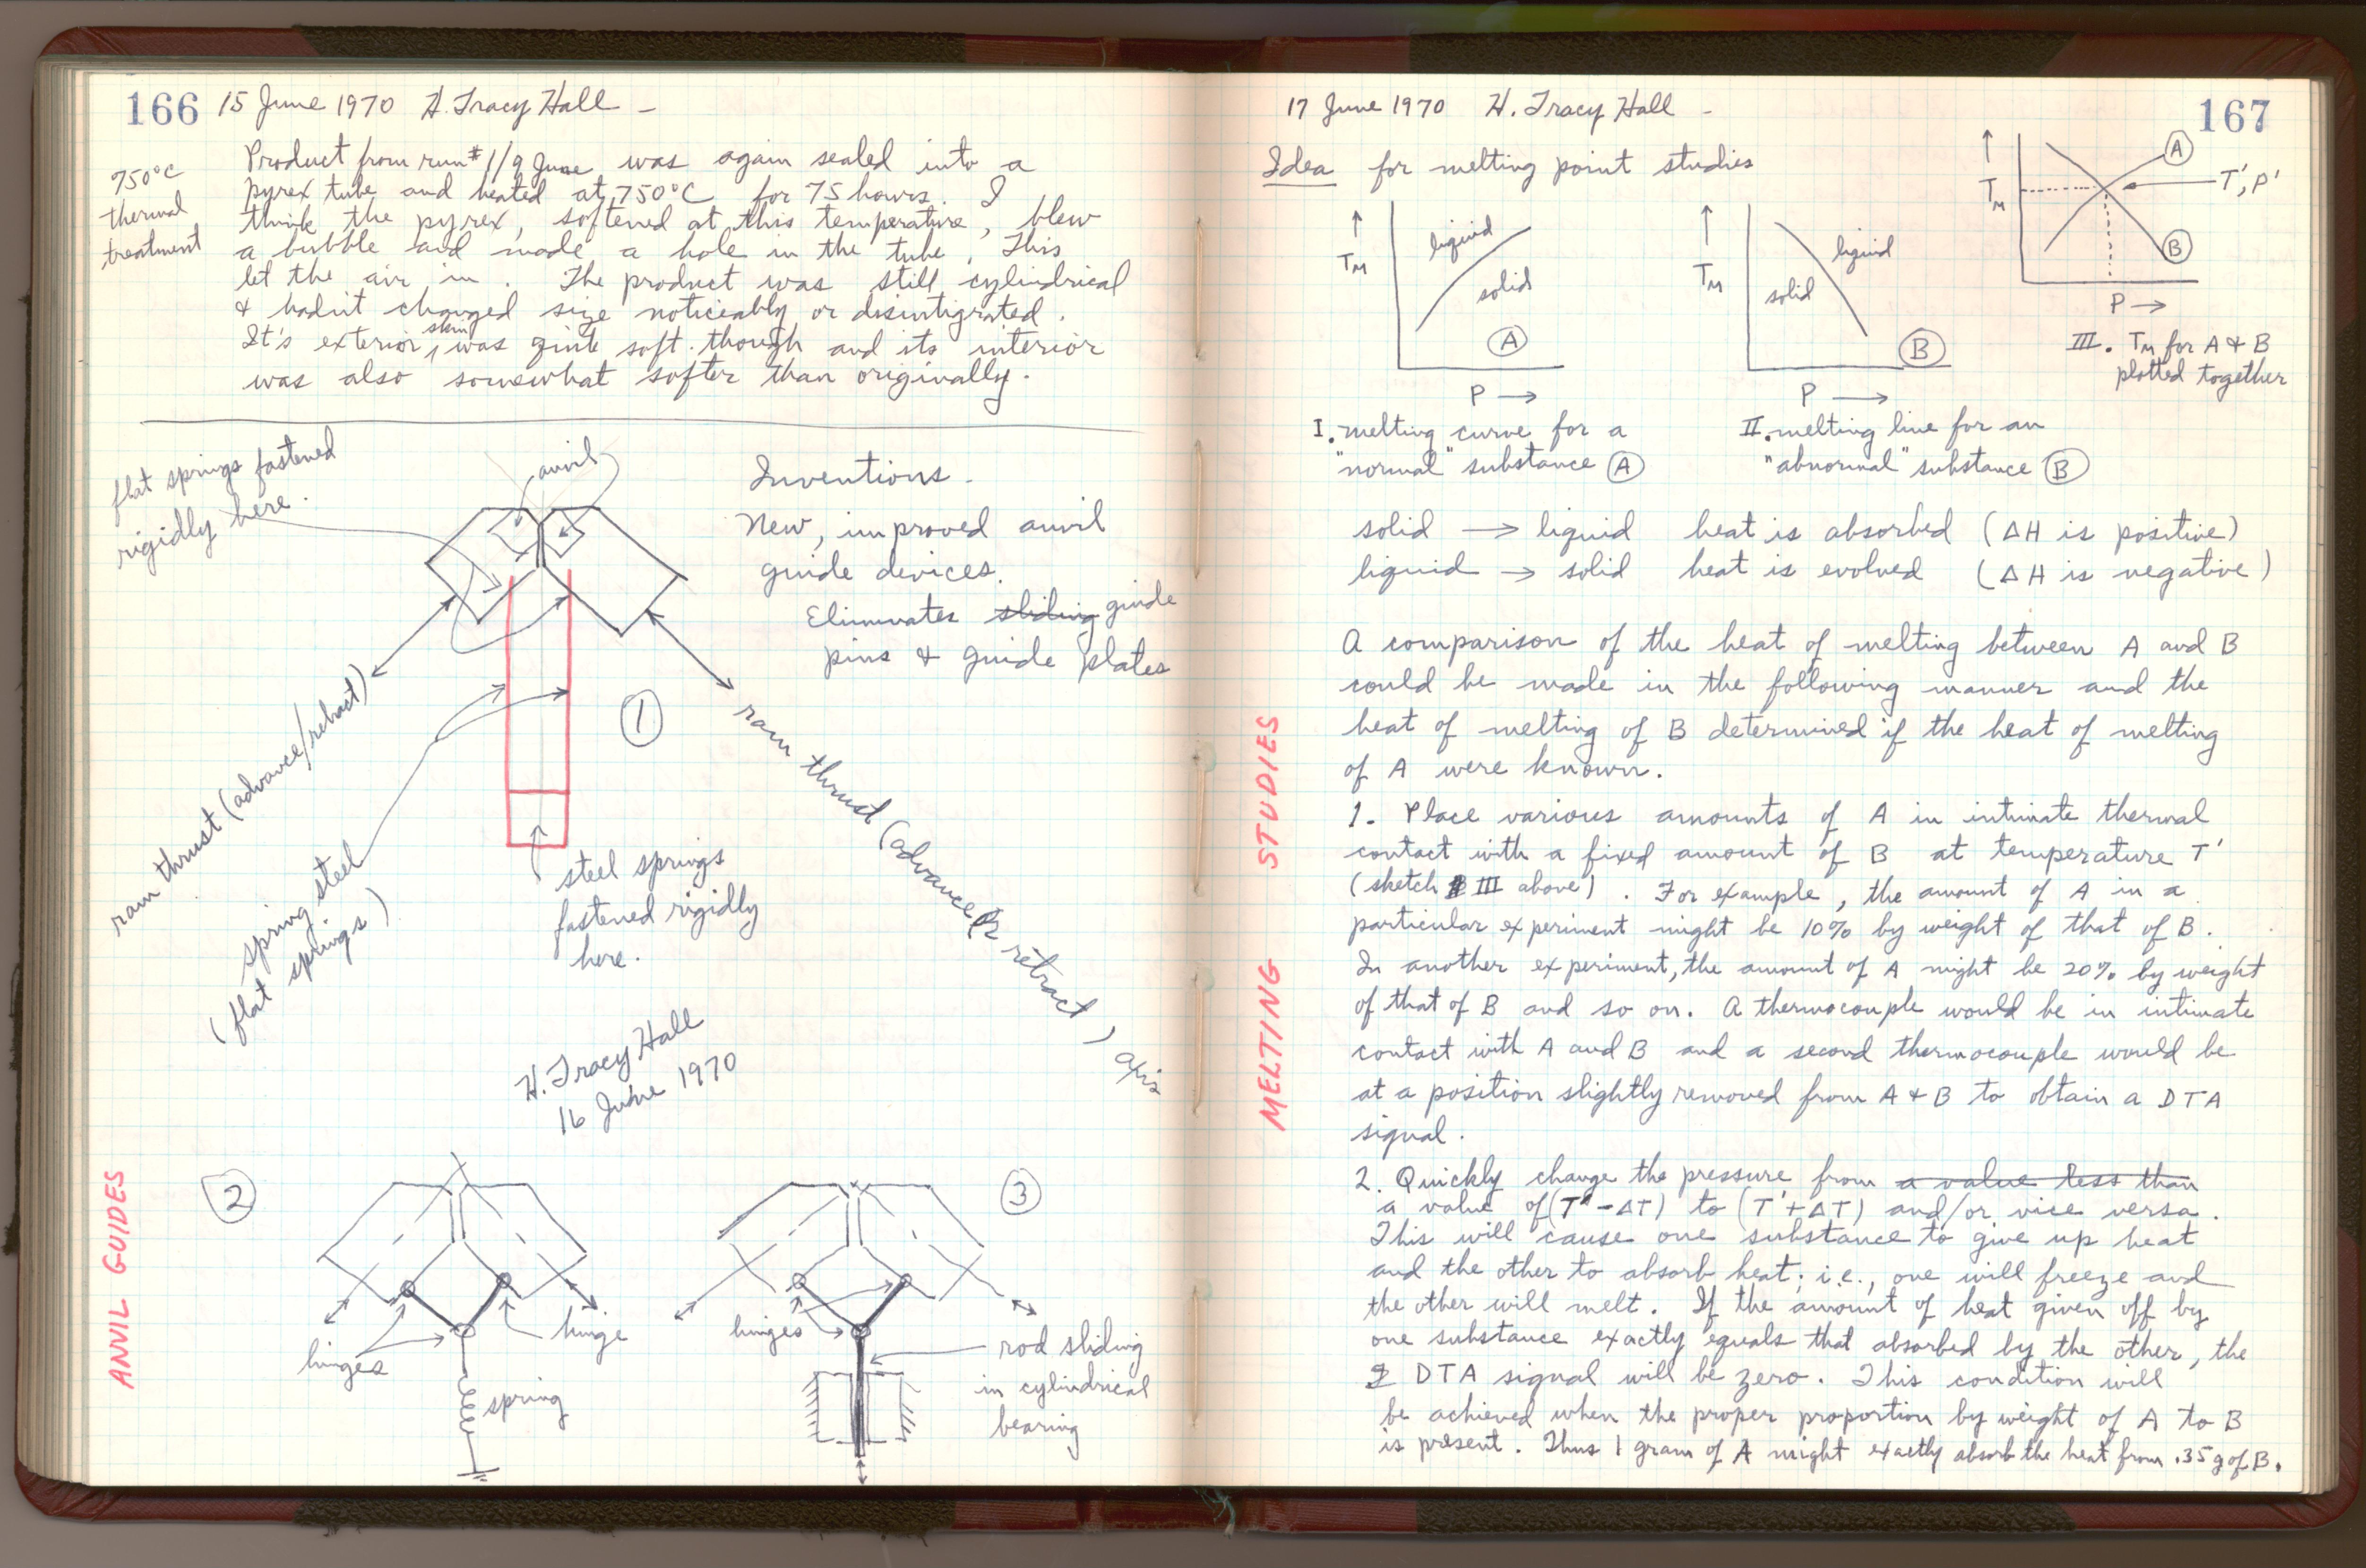 166 15 June 1970 H. Tracy Hall -
750°C
thermal
treatment
Product from run #1/9 June was again sealed into a
pyrex tube and heated at 750°C for 75 hours. I
think the pyrex, softened at this temperature, blew
a bubble and made a hole in the tube. This
let the air in. The product was still cylindrical
& hadn't changed size noticeably or disintigrated.
It's exterior skin was quite soft though and its interior
was also somewhat softer than originally.
flat springs fastened
rigidly here.
anvil
Inventions -
New, improved anvil
guide devices.
Eliminates sliding guide
pins & guide plates
①
ram thrust (advance/retract)
ram thrust (advance or retract) axis
spring steel
(flat springs)
steel springs
fastened rigidly
here.
H. Tracy Hall
16 June 1970
ANVIL GUIDES
②
hinges
hinge
spring
③
hinges
rod sliding
in cylindrical
bearing
17 June 1970 H. Tracy Hall - 167
Idea for melting point studies
TM
liquid
solid
A
P →
TM
liquid
solid
B
P →
TM
A
T', P'
B
P →
III. TM for A & B
plotted together
I. melting curve for a
"normal" substance A
II. melting line for an
"abnormal" substance B
solid → liquid heat is absorbed (ΔH is positive)
liquid → solid heat is evolved (ΔH is negative)
MELTING STUDIES
A comparison of the heat of melting between A and B
could be made in the following manner and the
heat of melting of B determined if the heat of melting
of A were known.
1. Place various amounts of A in intimate thermal
contact with a fixed amount of B at temperature T'
(sketch III above). For example, the amount of A in a
particular experiment might be 10% by weight of that of B.
In another experiment, the amount of A might be 20% by weight
of that of B and so on. A thermocouple would be in intimate
contact with A and B and a second thermocouple would be
at a position slightly removed from A & B to obtain a DTA
signal.
2. Quickly change the pressure from a value less than
a value of (T' - ΔT) to (T' + ΔT) and/or vice versa.
This will cause one substance to give up heat
and the other to absorb heat; i.e., one will freeze and
the other will melt. If the amount of heat given off by
one substance exactly equals that absorbed by the other, the
DTA signal will be zero. This condition will
be achieved when the proper proportion by weight of A to B
is present. Thus 1 gram of A might exactly absorb the heat from .35 g of B.